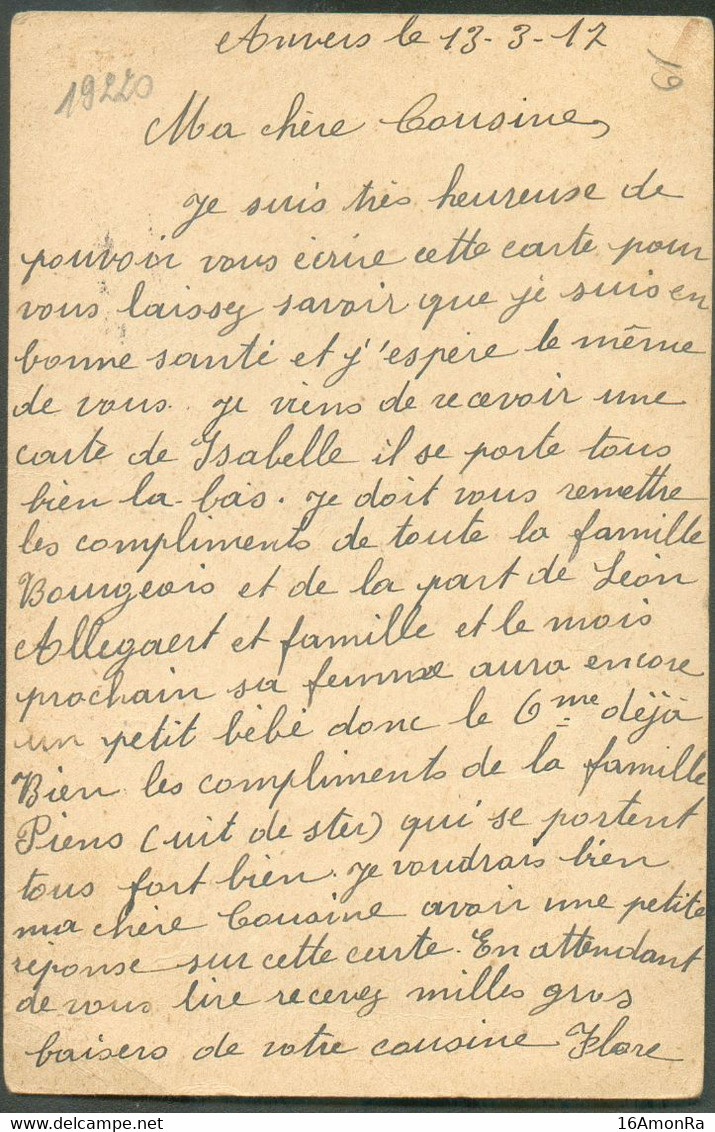 Anvers le 13-3-17
19
19220
Ma chère Cousine,
Je suis très heureuse de
pouvoir vous écrire cette carte pour
vous laissez savoir que je suis en
bonne santé et j'espère le même
de vous. Je viens de recevoir une
carte de Isabelle il se porte tous
bien la-bas. Je doit vous remettre
les compliments de toute la famille
Bourgeois et de la part de Léon
Allegaert et famille et le mois
prochain sa femme aura encore
un petit bébé donc le 6me déjà
Bien les compliments de la famille
Piens (uit de ster) qui se portent
tous fort bien. Je voudrais bien
ma chère Cousine avoir une petite
réponse sur cette carte. En attendant
de vous lire recevez milles gros
baisers de votre cousine Flore
16AmonRa